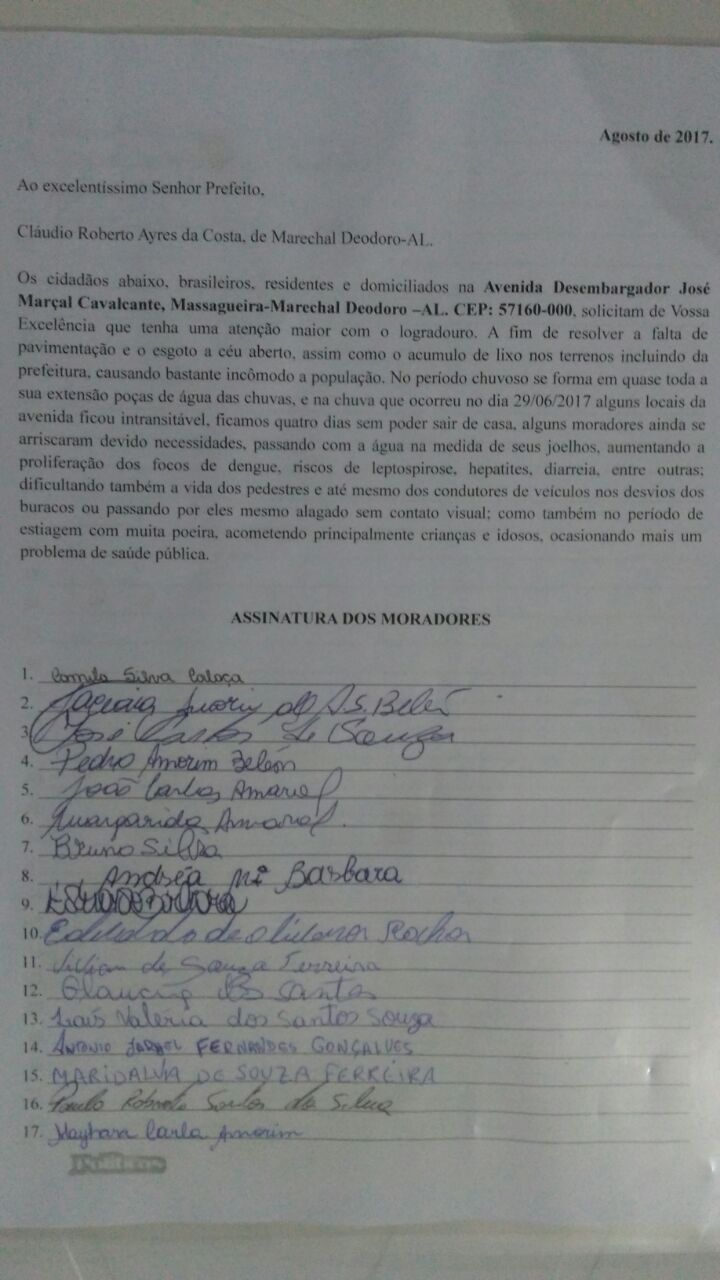 Agosto de 2017.
Ao excelentíssimo Senhor Prefeito,
Cláudio Roberto Ayres da Costa, de Marechal Deodoro-AL.
Os cidadãos abaixo, brasileiros, residentes e domiciliados na Avenida Desembargador José
Marçal Cavalcante, Massagueira-Marechal Deodoro –AL. CEP: 57160-000, solicitam de Vossa
Excelência que tenha uma atenção maior com o logradouro. A fim de resolver a falta de
pavimentação e o esgoto a céu aberto, assim como o acumulo de lixo nos terrenos incluindo da
prefeitura, causando bastante incômodo a população. No período chuvoso se forma em quase toda a
sua extensão poças de água das chuvas, e na chuva que ocorreu no dia 29/06/2017 alguns locais da
avenida ficou intransitável, ficamos quatro dias sem poder sair de casa, alguns moradores ainda se
arriscaram devido necessidades, passando com a água na medida de seus joelhos, aumentando a
proliferação dos focos de dengue, riscos de leptospirose, hepatites, diarreia, entre outras;
dificultando também a vida dos pedestres e até mesmo dos condutores de veículos nos desvios dos
buracos ou passando por eles mesmo alagado sem contato visual; como também no período de
estiagem com muita poeira, acometendo principalmente crianças e idosos, ocasionando mais um
problema de saúde pública.
ASSINATURA DOS MORADORES
1. Camila Silva Calaça
2. S. Belén
3. José Carlos de Souza
4. Pedro Amorim Belén
5. João Carlos Amaral
6. Margarida Amaral.
7. Bruno Silva
8. Andréa Mª Barbara
9.
10. de Oliveira Rocha
11. de Souza Ferreira
12. Glaucia dos Santos
13. Laís Valéria dos Santos Souza
14. ANTONIO FERNANDES GONÇALVES
15. MARIDALVA DE SOUZA FERREIRA
16. Paulo Roberto Santos da Silva
17. Mayhara Carla Amorim